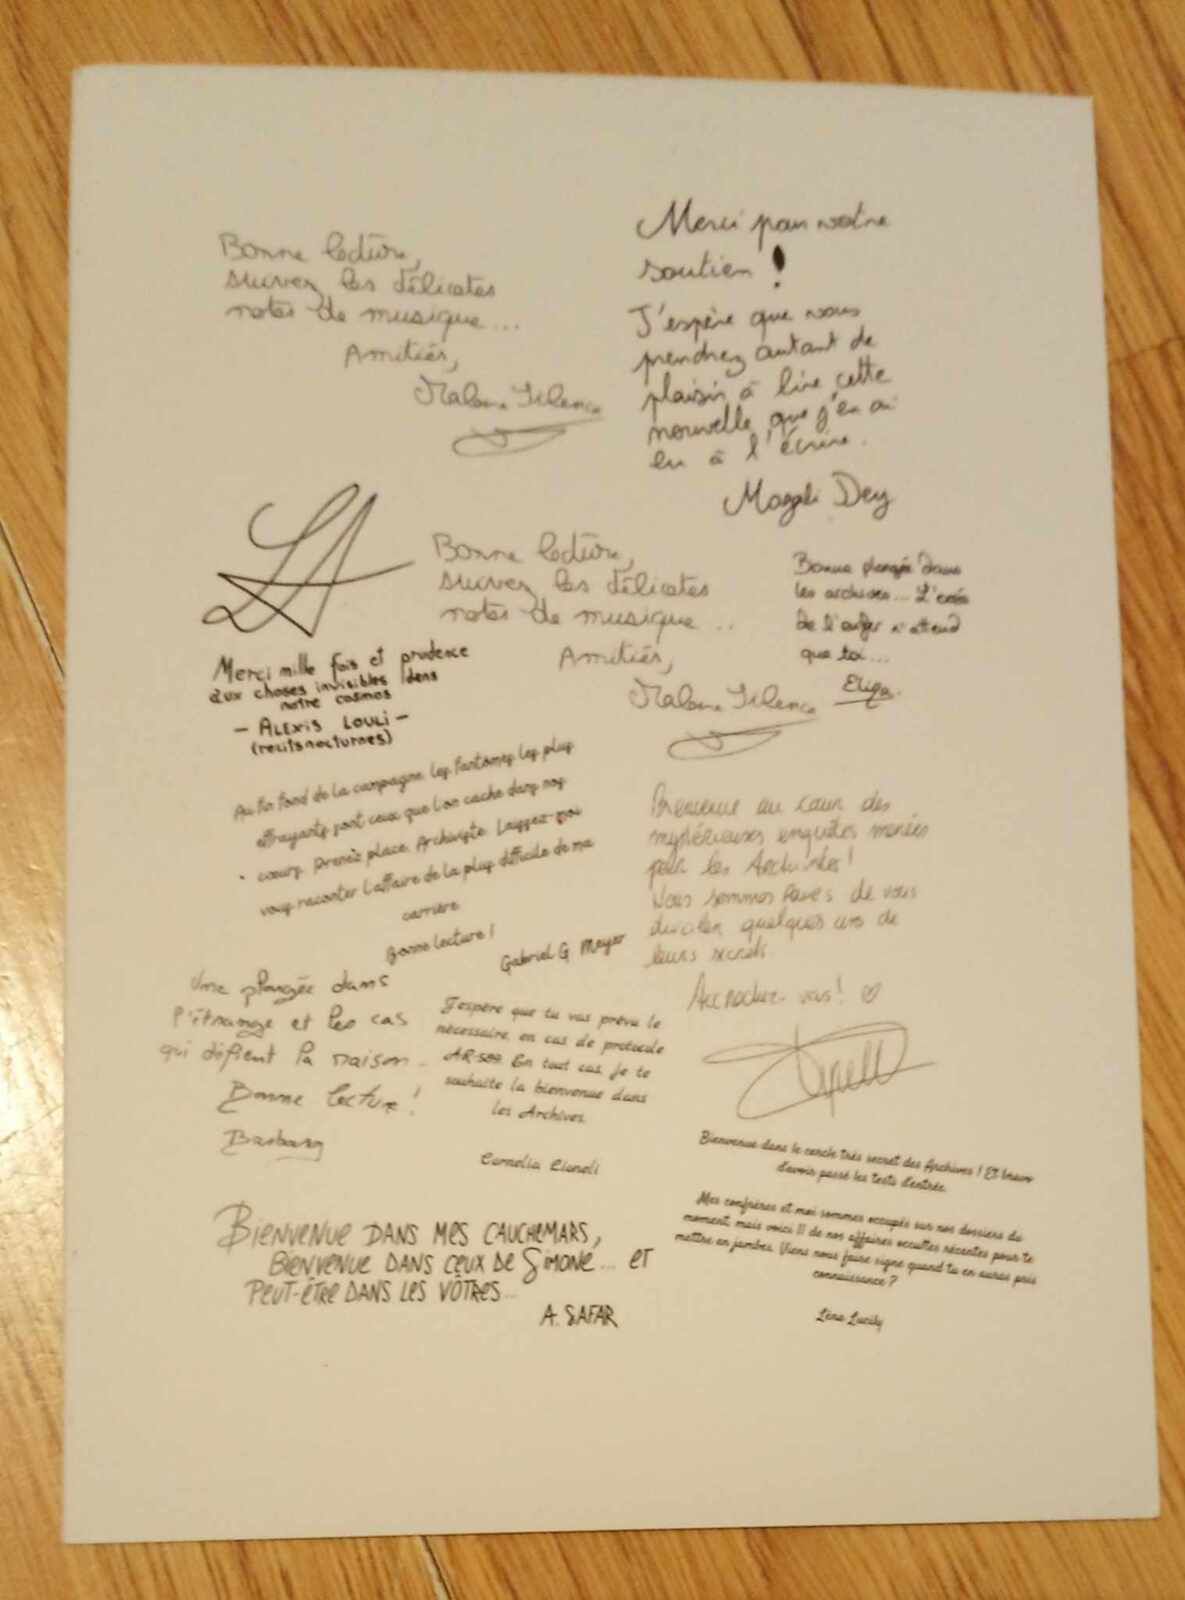 Bonne lecture,
suivez les délicates
notes de musique...
Amitiés,
Merci pour votre
soutien !
J'espère que vous
prendrez autant de
plaisir à lire cette
nouvelle que j'en ai
eu à l'écrire.
Magali Dey
Bonne lecture,
suivez les délicates
notes de musique...
Amitiés,
Bonne plongée dans
les archives... L'orée
de l'enfer n'attend
que toi...
LA
Merci mille fois et prudence
aux choses invisibles dans
notre cosmos
- ALEXIS LOULI -
(recitsnocturnes)
Au fin fond de la campagne, les fantômes les plus
effrayants sont ceux que l'on cache dans nos
cœurs. Prenez place, Archiviste. Laissez-moi
vous raconter l'affaire de la plus difficile de ma
carrière.
Bonne lecture !
Gabriel G. Meyer
Bienvenue au cœur des
mystérieuses enquêtes menées
par les Archivistes !
Nous sommes ravis de vous
dévoiler quelques uns de
leurs secrets.
Accrochez-vous ! ♡
Une plongée dans
l'étrange et les cas
qui défient la raison...
Bonne lecture !
J'espère que tu vas prévu le
nécessaire, en cas de protocole
AR-509. En tout cas, je te
souhaite la bienvenue dans
les Archives.
Bienvenue dans le cercle très secret des Archives ! Et bravo
d'avoir passé les tests d'entrée.
Mes confrères et moi sommes occupés sur nos dossiers du
moment, mais voici 11 de nos affaires occultes récentes pour te
mettre en jambes. Viens nous faire signe quand tu en auras pris
connaissance ?
BIENVENUE DANS MES CAUCHEMARS,
BIENVENUE DANS CEUX DE SIMONE... ET
PEUT-ÊTRE DANS LES VÔTRES...
A. SAFAR